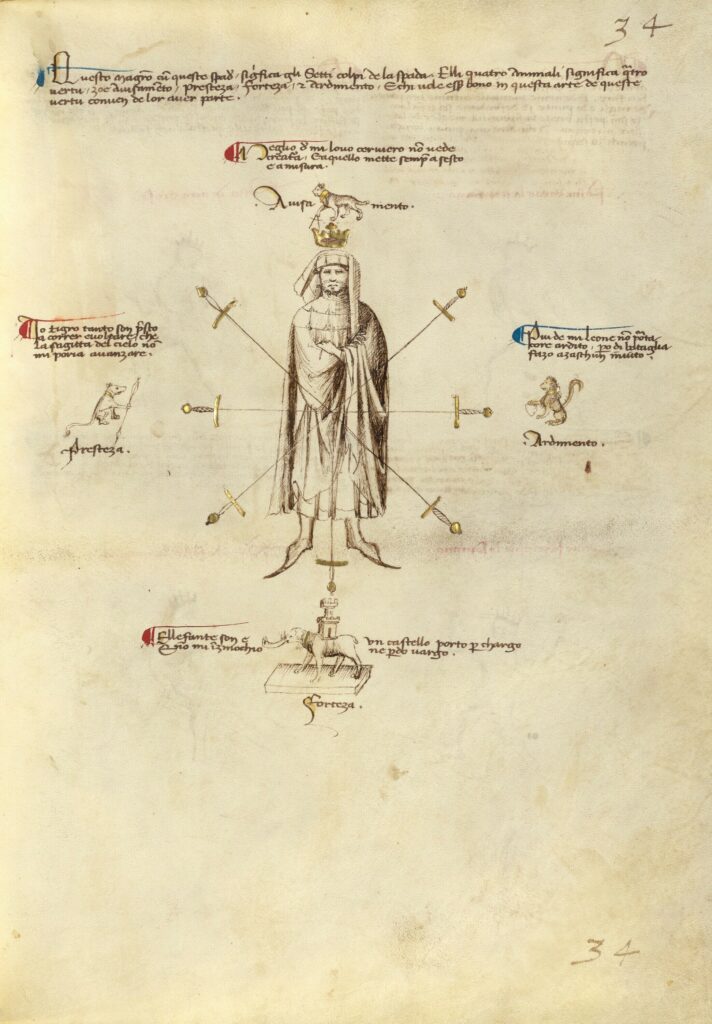 34
Questo magro cū queste spad. sigfica gli Setti colpi de la spada. Elli quatro animali significa q̄tro
vertu, zoe avisamēto, Presteza, Forteza, 2 Ardimento. E chi vole ess bono in questa arte de queste
vertu conven de lor aver parte.
Meglio d mi lovo cerviero nō vede
creatura. E aquello mette semp a sesto
e a misura.
Avisa mento.
Io tigro tanto son p̄sto
a correr e voltare, che
la sagitta del cielo nō
mi poria avanzare.
Presteza.
Piu de mi leone nō porta
core ardito, po di bataglia
fazo a zaschun invito.
Ardimento.
Ellefante son e un castello porto p chargo
E nō mi ne pdo vargo.
Forteza.
34